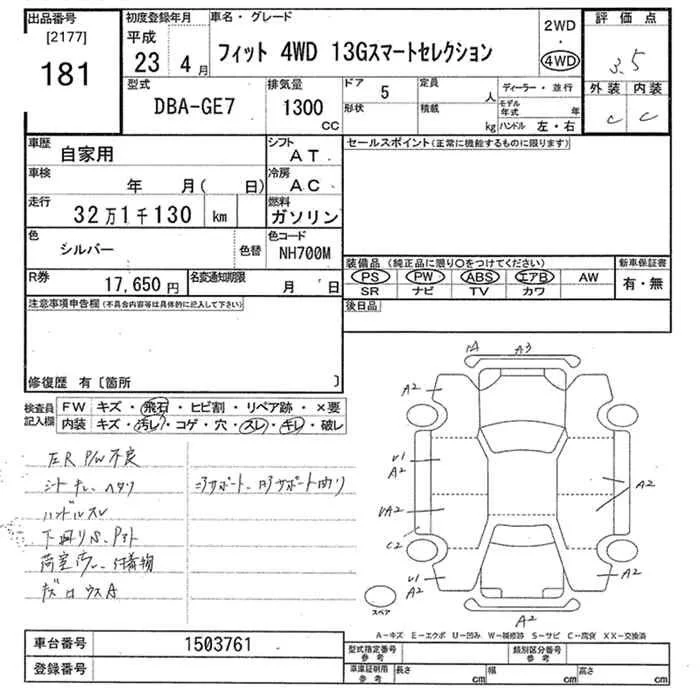 出品番号
[2177]
181
初度登録年月
平成
23 4月
車名・グレード
フィット 4WD 13Gスマートセレクション
2WD
・
4WD
評価点
3.5
外装 内装
C C
型式
DBA-GE7
排気量
1300
CC
ドア 5
形状
定員 人
積載 kg
ディーラー・並行
モデル年式 年
ハンドル 左・右
車歴
自家用
シフト
AT
車検
年 月( 日)
冷房
AC
走行
32万1千130 km
燃料
ガソリン
色
シルバー
色替
色コード
NH700M
R券
17,650円
名変通知期限
月 日
セールスポイント(正常に機能するものに限ります)
装備品(純正品に限り○をつけてください)
PS PW ABS エアB AW
SR ナビ TV カワ
新車保証書
有・無
後日品
注意事項申告欄(不具合内容等は具体的に記入して下さい)
修復歴 有〔箇所 〕
検査員記入欄
FW キズ・飛石・ヒビ割・リペア跡・×要
内装 キズ・汚レ・コゲ・穴・スレ・キレ・破レ
P/W不良
ハンドルスレ
A3
A2
A2
A2
A2
C2
A2
A2
A2
スペア
A−キズ E−エクボ U−凹み W−補修跡 S−サビ C−腐食 XX−交換済
車台番号 1503761
登録番号
型式指定番号
参考
類別区分番号
参考
車庫証明用
参考
長さ cm 幅 cm 高さ cm